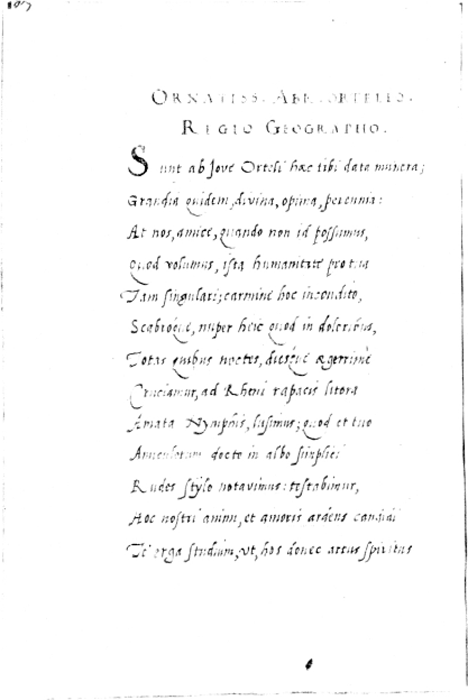 107
ORNATISS. ABR. ORTELIO.
REGIO GEOGRAPHO.
Sunt ab Jove Orteli hæc tibi data munera;
Grandia quidem, divina, opima, perennia:
At nos, amice, quando non id possumus,
Quod volumus, ista humanitate pro tua
Tam singulari; carmine hoc incondito,
Scabroque, nuper heic quod in doloribus,
Totas quibus noctes, diesque ægerrime
Cruciamur, ad Rheni rapacis litora
Amata Nymphis, lusimus; quod et tuo
Amicorum docto in albo simplici
Rudes stylo notavimus: testabimur,
Hoc nostri animi, et amoris ardens candidi
Te erga studium, ut, hos donec artus spiritus